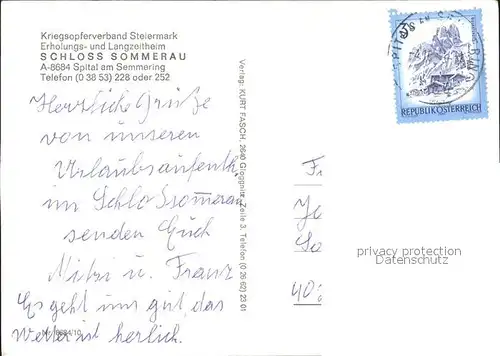 Kriegsopferverband Steiermark
Erholungs- und Langzeitheim
SCHLOSS SOMMERAU
A-8684 Spital am Semmering
Telefon (0 38 53) 228 oder 252
Herzliche Grüße
von unseren
Urlaubsaufenth.
im Schloss Sommerau
senden Euch
Mitzi u. Franz
Es geht uns gut, das
Wetter ist herlich.
Nr. 8684/10
Verlag: KURT FASCH, 2640 Gloggnitz, Zeile 3, Telefon (0 26 62) 23 01
REPUBLIK ÖSTERREICH
privacy protection
Datenschutz